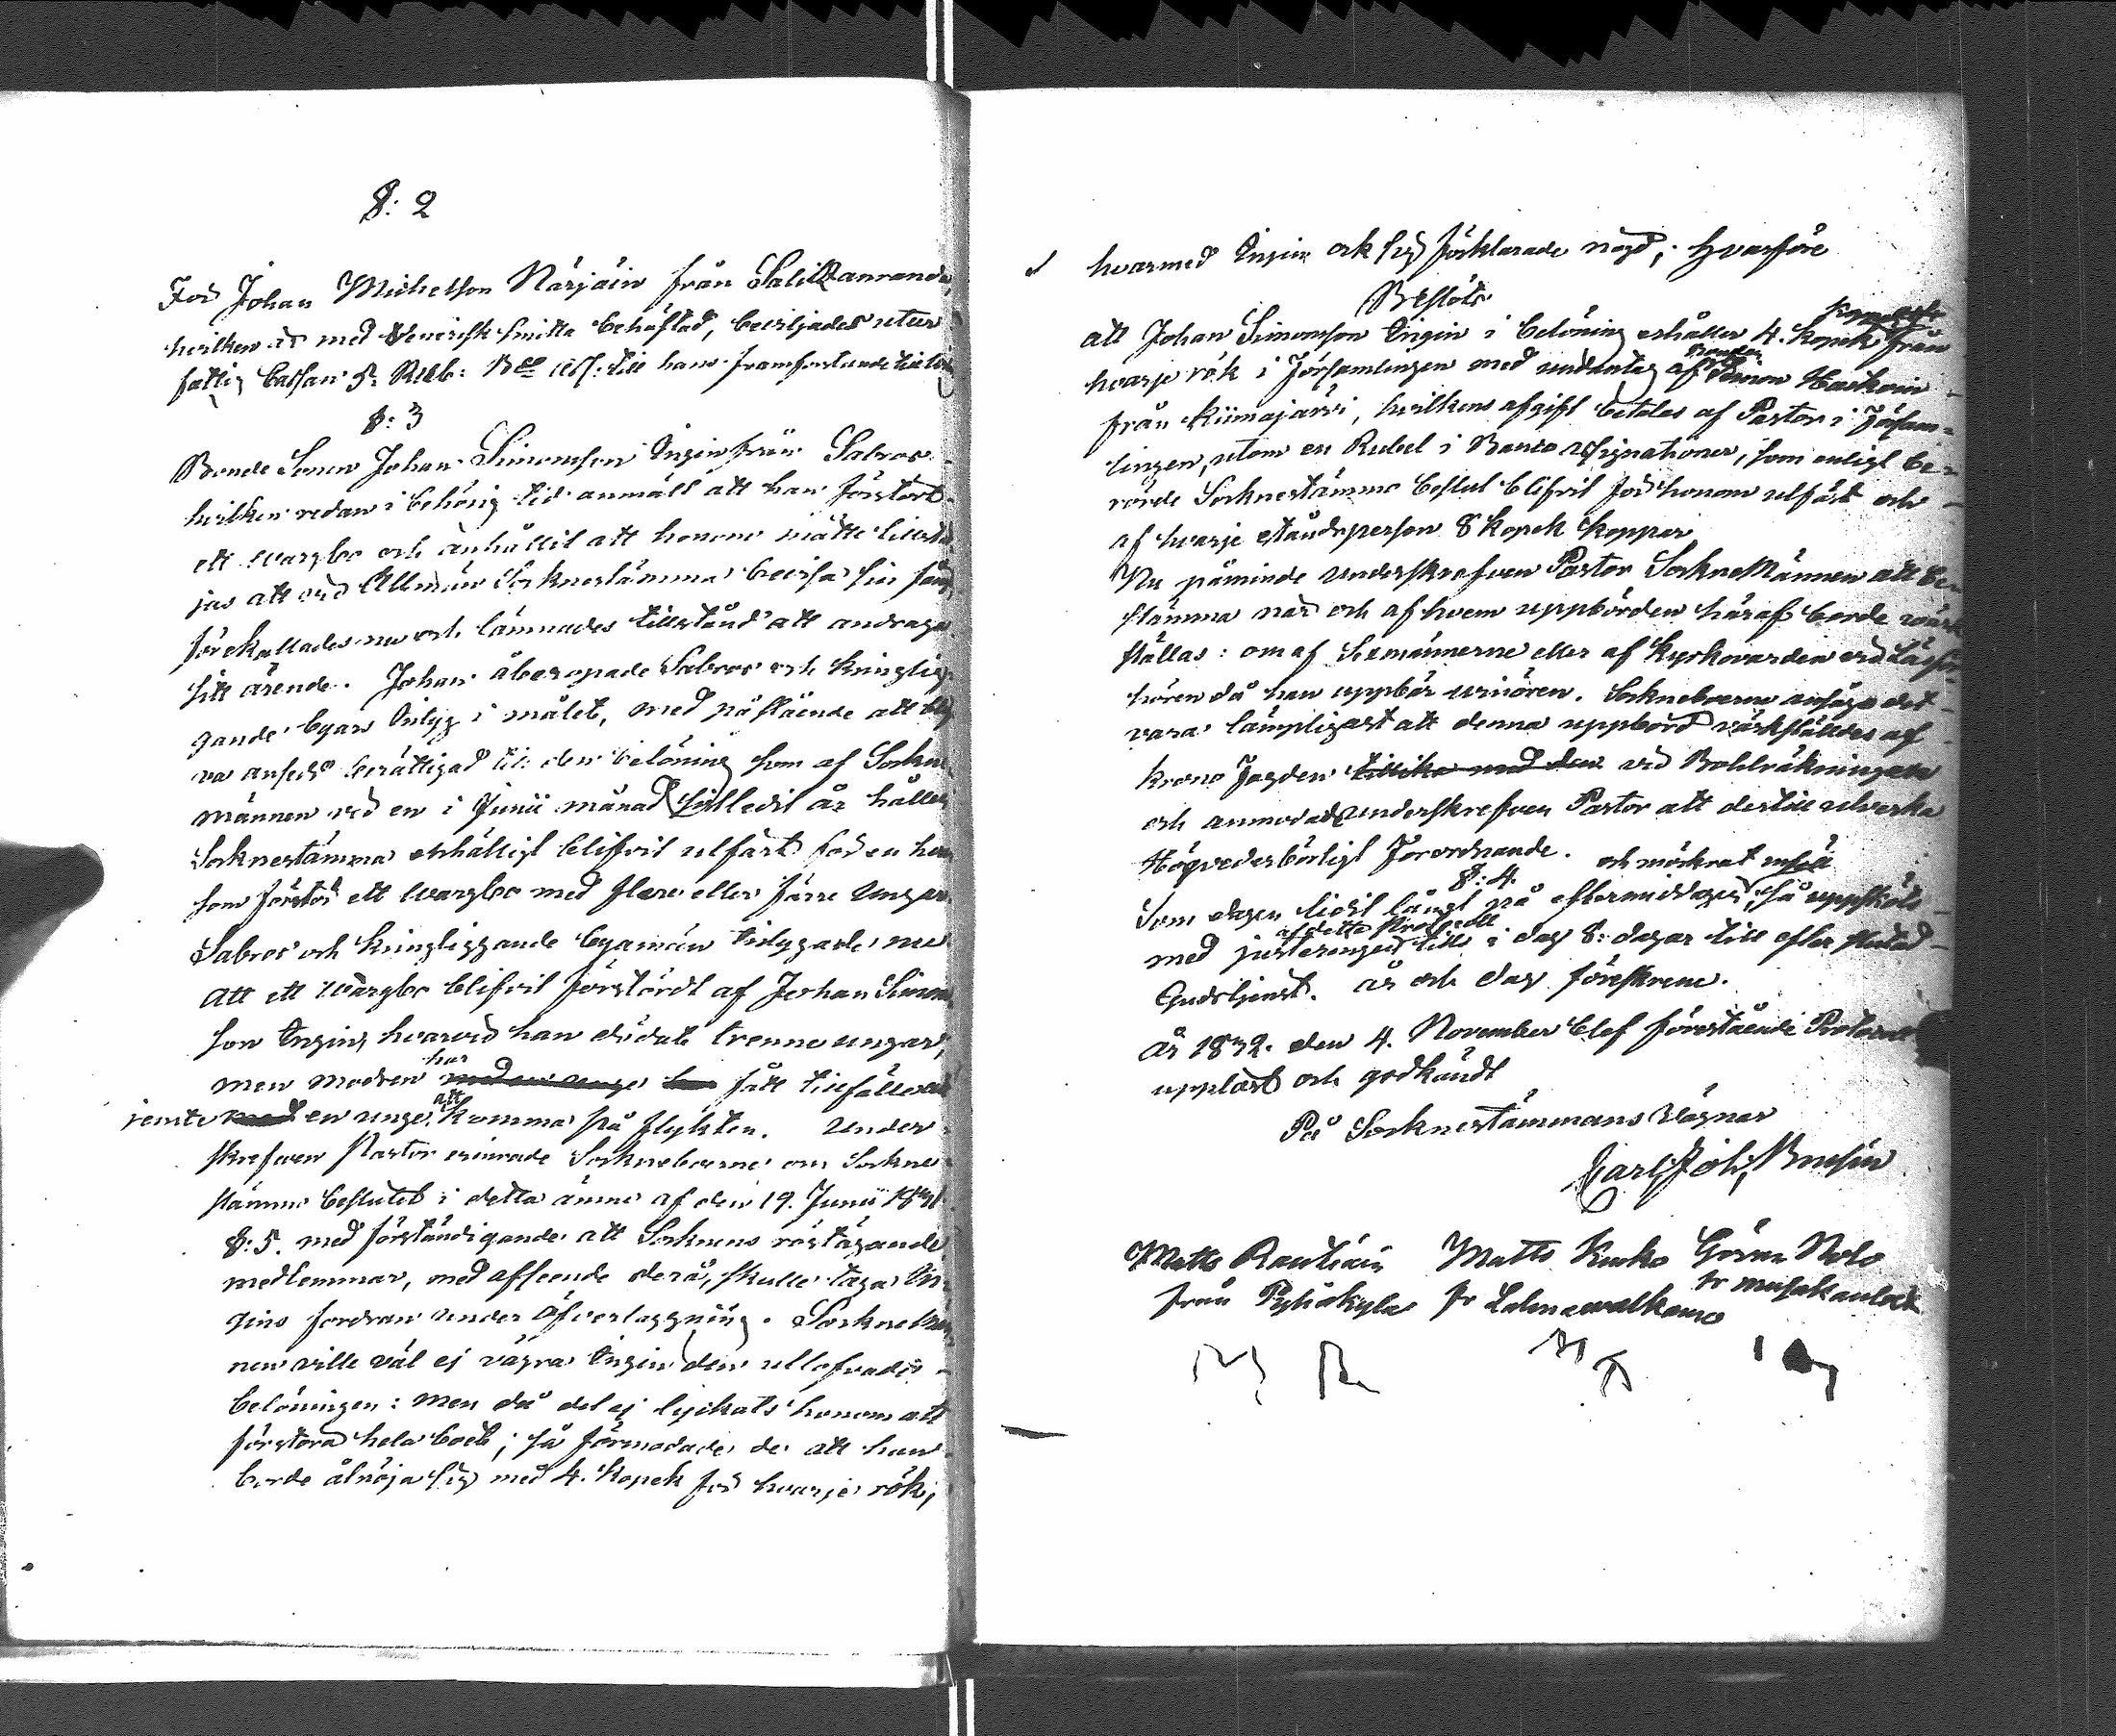 §: 2
För Johan Michelson Närjäin från Salitzanranda,
hvilken är med Venerisk smitta behäftad, beviljades utur
fattig Cassan 5. Rub: Bco ass: till hans framforslande till
§: 3
Bonde Sonen Johan Simonson Ingin från Sabros
hvilken redan i behörig tid anmält att han förstört
ett vargbo och anhållit att honom måtte tillåt
jas att vid Allmän Socknestämma bevisa sin
förekallades nu och lämnades tillstånd att andraga
sitt ärende. Johan åberopade Sabros och kringlig
gande byars intyg i målet, med påstående att bli
va ansedd berättigad till den belöning som af Sockne
männen vid en i Junii månad sistledit år hållen
Socknestämma enhälligt blifvit utfäst för en hvar
som förstör ett vargbo med flere eller färre ungar.
Sabros och kringliggande byamän intygade nu
att ett Wargbo blifvit förstördt af Johan Simon
son Ingin, hvarvid han dödat trenne ungar,
men modren har fått tillfälle
jemte en unge, att komma på flykten. Under
skrefven Pastor erinrade Sockneboerne om Sockne
stämmo beslutet i detta ämne af den 19. Junii 1831
§: 5. med förständigande att Socknens röstägande
medlemmar, med afseende derå, skulle taga In
gins fordran under öfverläggning. Sockne Män
nen ville väl ej vägra Ingin den utlofvade
belöningen: men då det ej lyckats honom att
förstöra hela boet; så förmodade de att han
borde åtnöja sig med 4. Kopek för hvarje rök;
hvarmed Ingin ock sig förklarade nöjd; hvarföre
Beslöts
att Johan Simonson Ingin i belöning erhåller 4. Kopek koppar från
hvarje rök i Församlingen med undantag af bonden Simon Haikoin
från Kiimajärvi, hvilkens afgift betalas af Pastor i Församlingen,
lingen, utom en Rubel i Banco Assignationer, som enligt be-
rörde Socknestämmo beslut blifvit för honom utfäst och
af hvarje ståndsperson 8 kopek koppar
Nu påminde underskrefven Pastor SockneMännen att be-
stämma när och af hvem uppbörden häraf borde värk
ställas: om af Sexmännerne eller af Kyrkovärden vid Läsför
hören då han uppbär. Socknboerne ansågo det
vara lämpligast att denna uppbörd värkställdes af
krono fogden vid Bohlräkningen
och anmodade underskrefven Pastor att dertill utverka
Högvederbörligt Förordnande.
§: 4.
Som dagen lidit långt på eftermiddagen, och mörknat så uppsköts
med justeringen af detta Protocoll till i dag 8: dagar till efter slutad
Gudstjenst. år och dag föreskrene.
År 1832. den 4. November blef förestående Protocoll
uppläst och godkändt
På Socknestämmans vägnar
Carl Joh,
Matts Rautiain Matts Kucko Göran Nolo
från Pyhäkylä fr Lahnawalkama fr
M R M K